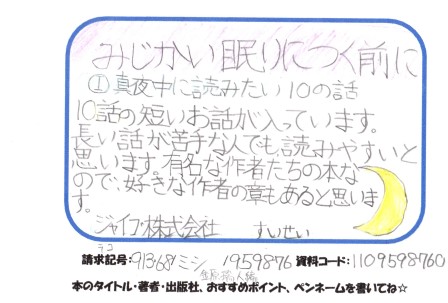 みじかい眠りにつく前に
①真夜中に読みたい10の話
10話の短いお話が入っています。
長い話が苦手な人でも読みやすいと
思います。有名な作者たちの本な
ので、好きな作者の章もあると思いま
す。
ジャイブ・株式会社 すいせい
請求記号:913.68ミシ 1959876 資料コード:1109598760
金原瑞人編
本のタイトル・著者・出版社、おすすめポイント、ペンネームを書いてね☆